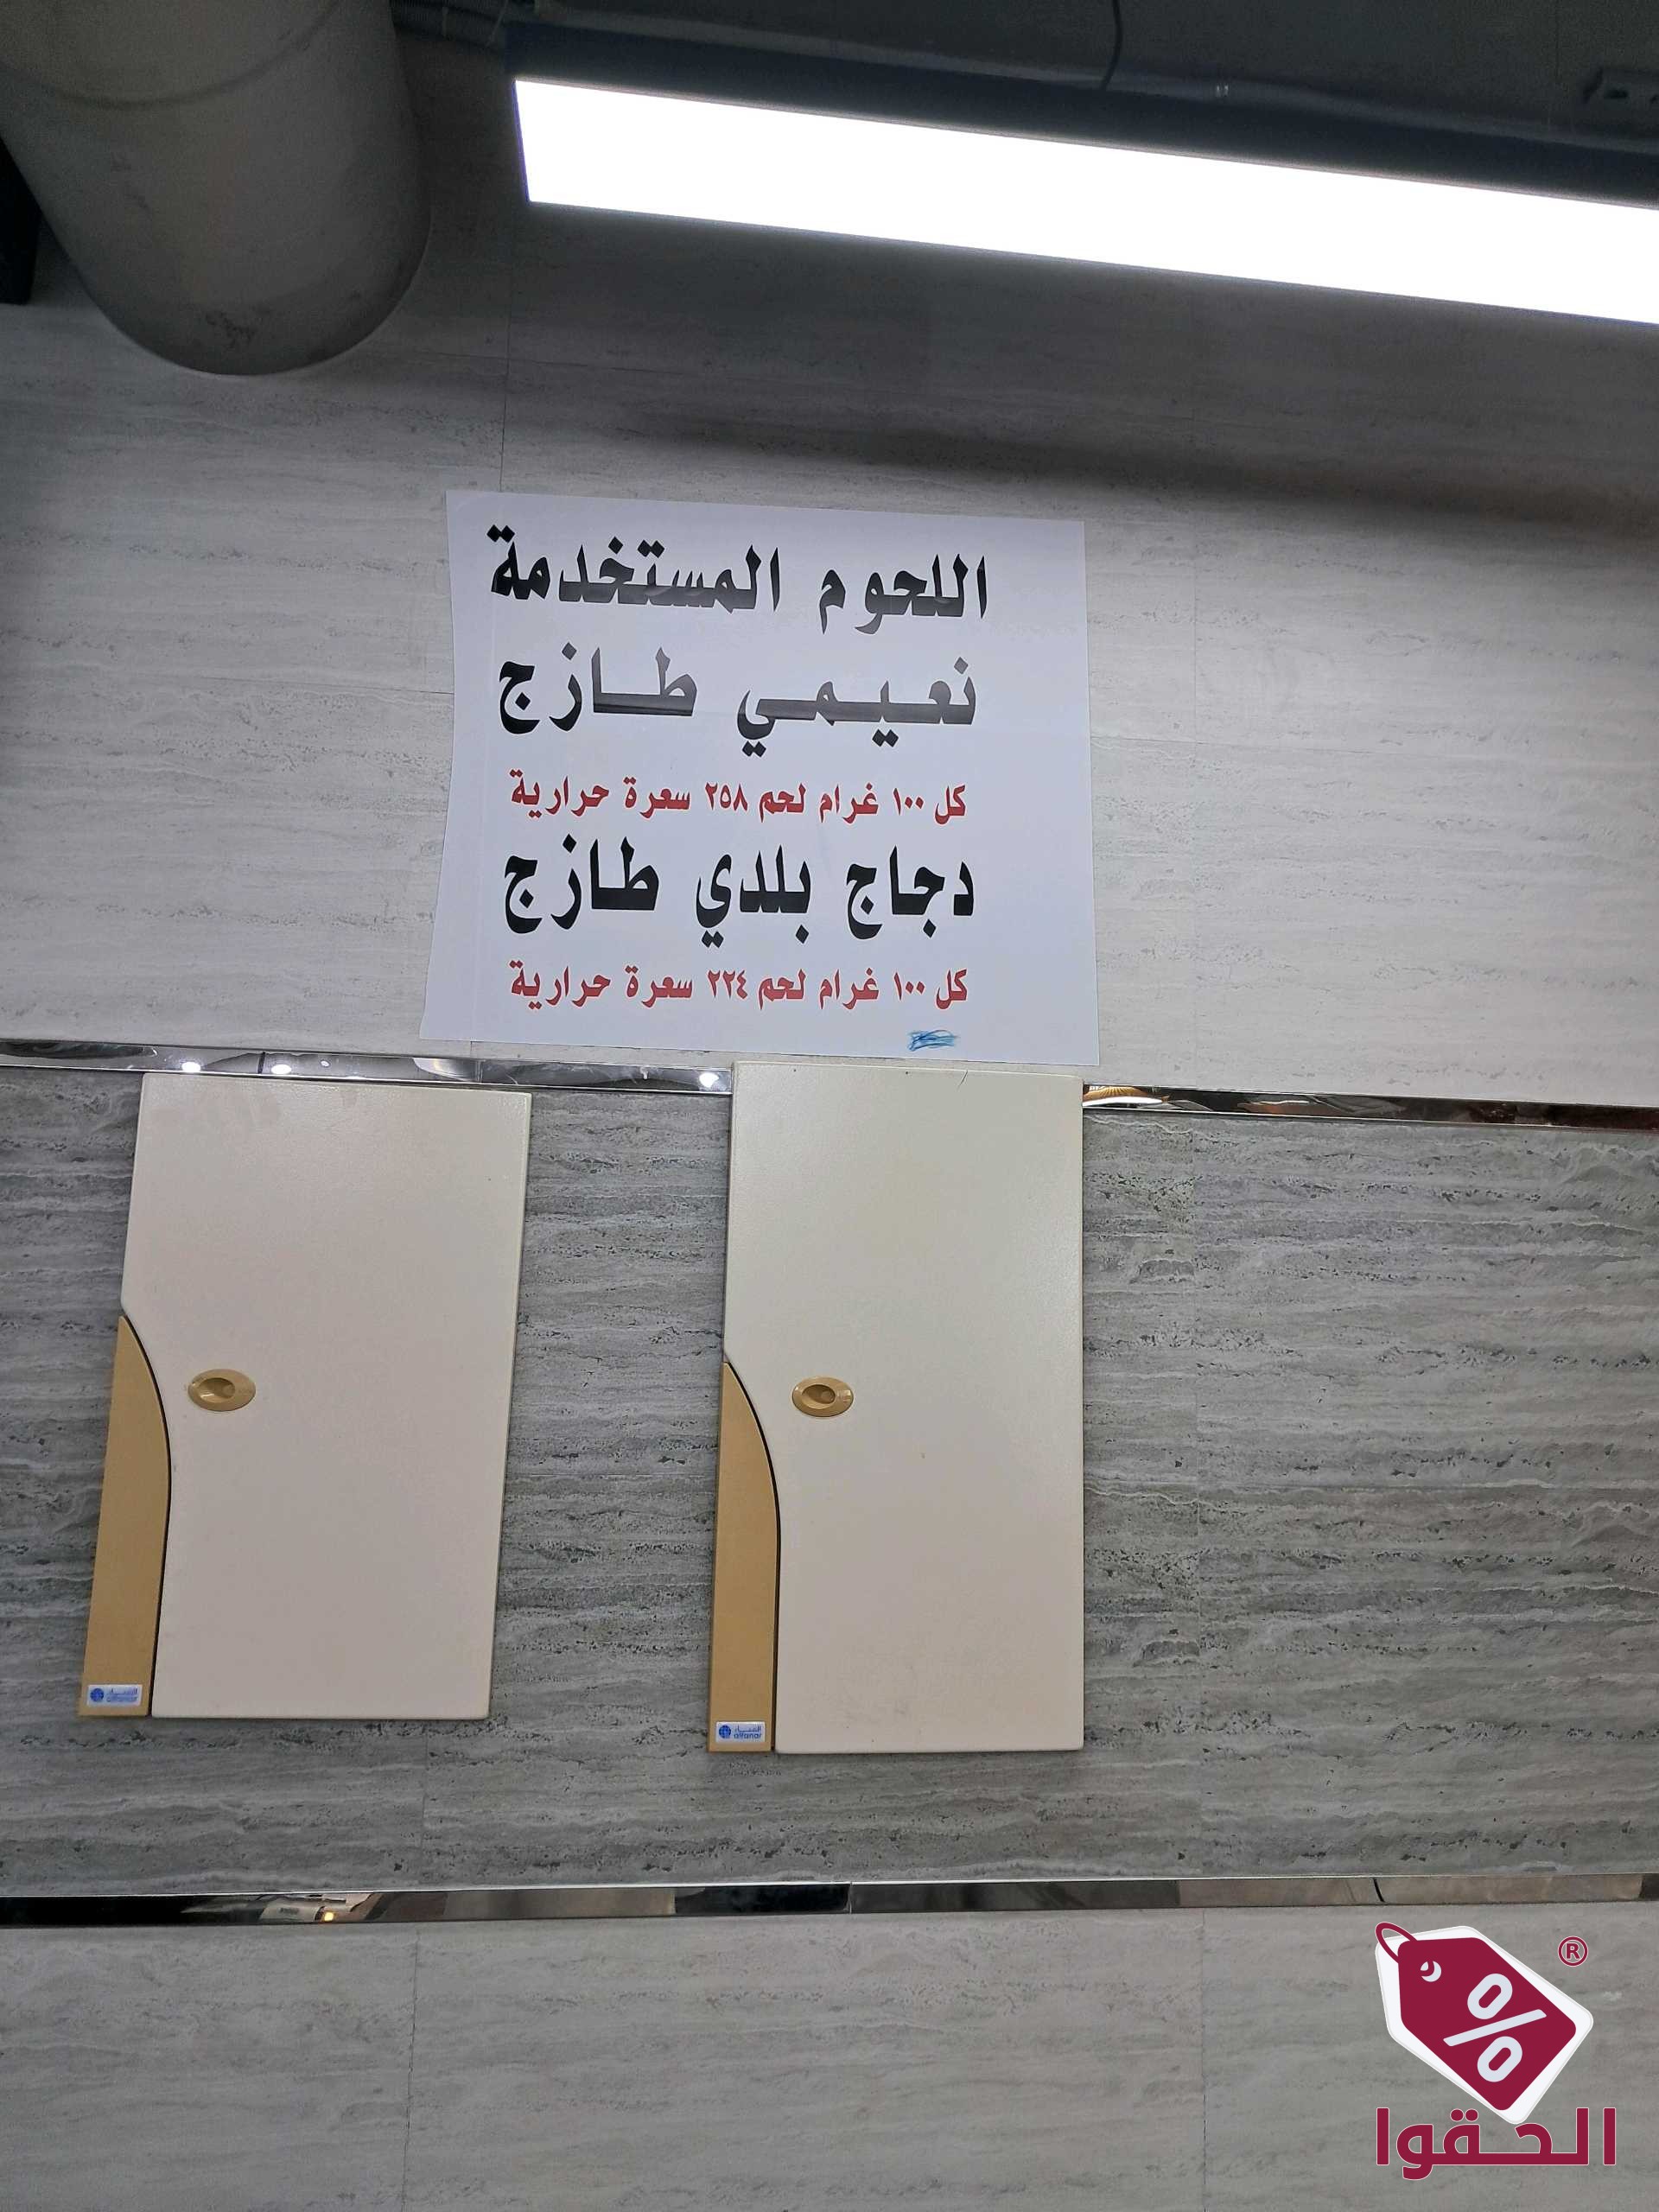 اللحوم المستخدمة
نعيمي طازج
كل ١٠٠ غرام لحم ٢٥٨ سعرة حرارية
دجاج بلدي طازج
كل ١٠٠ غرام لحم ٢٢٤ سعرة حرارية
الفنار
alfanar
الفنار
alfanar
%
®
الحقوا